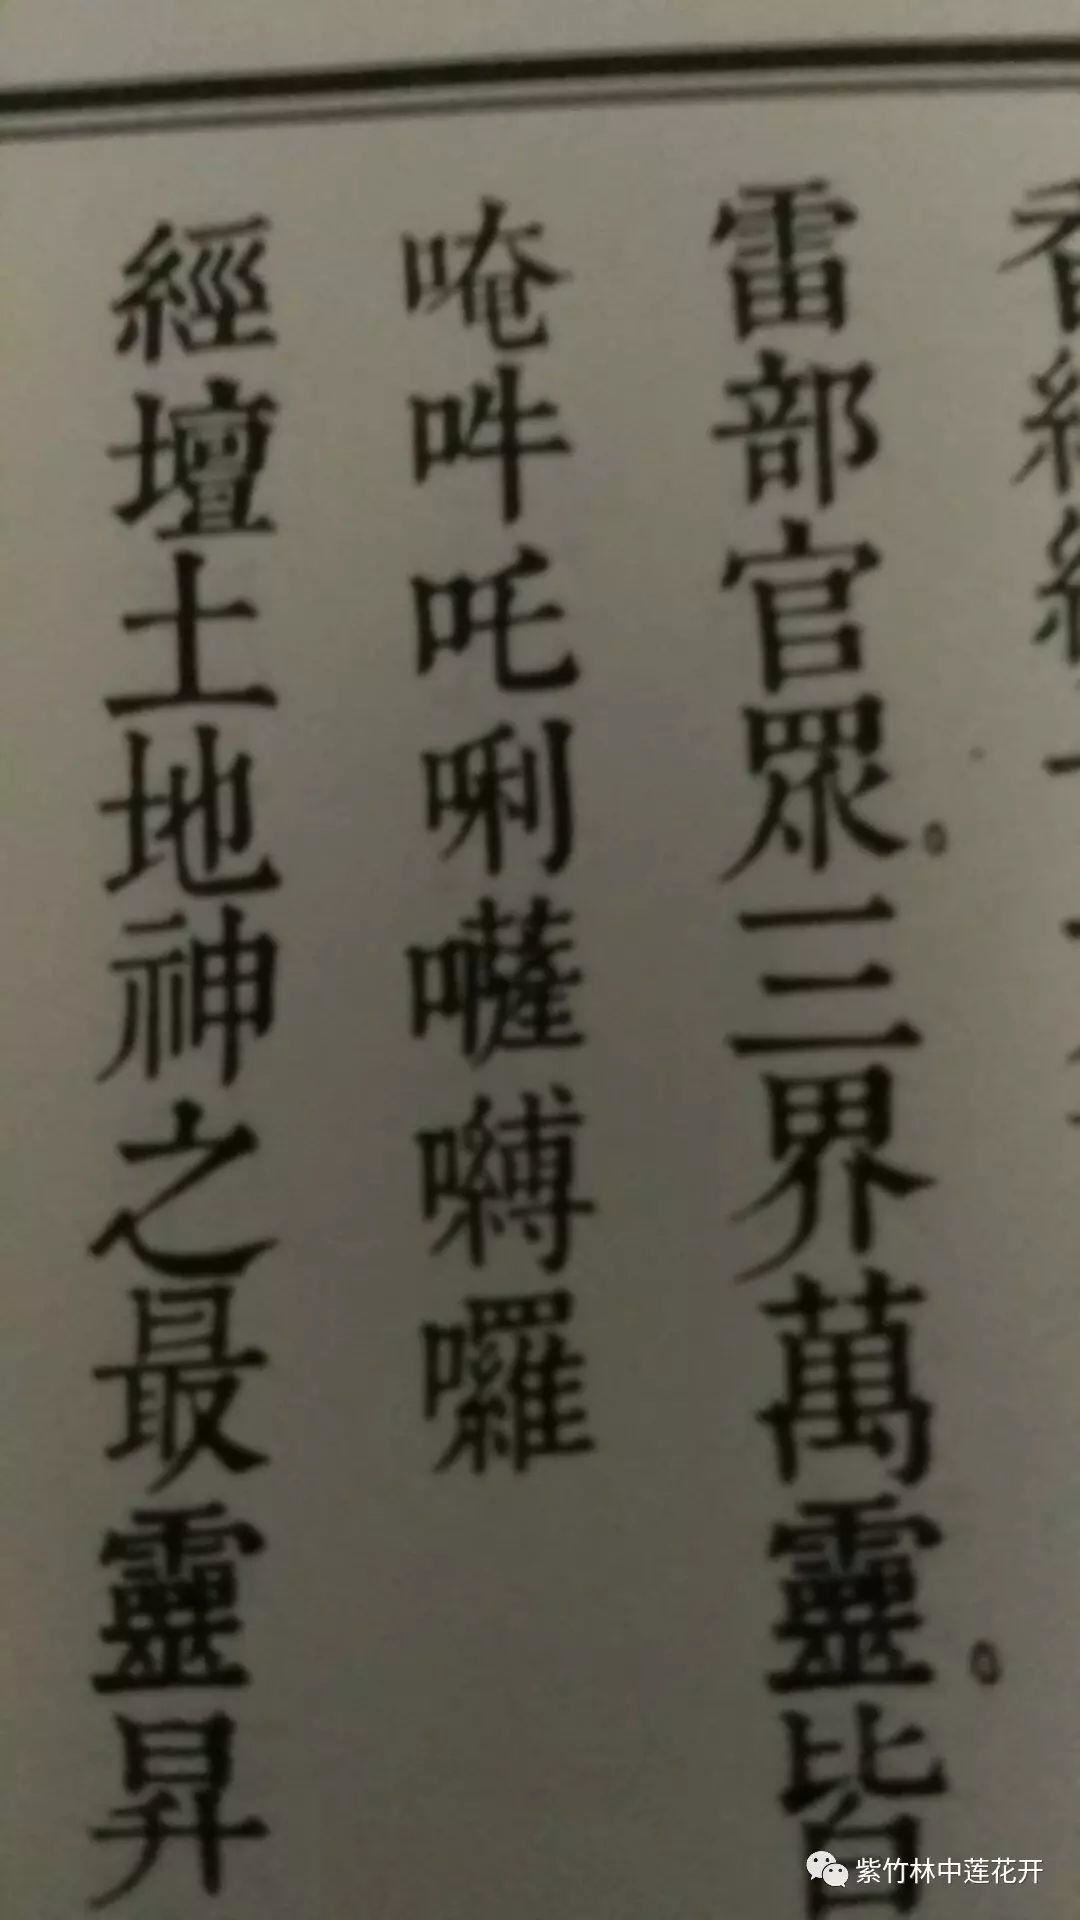 雷部官眾。三界萬靈。皆
唵吽吒唎囄嚩囉
經壇土地神之最靈昇
紫竹林中莲花开